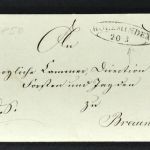 HOLZMINDEN
20 3
An
zogliche Cammer Direction
Forsten und Jagden
zu
Braun